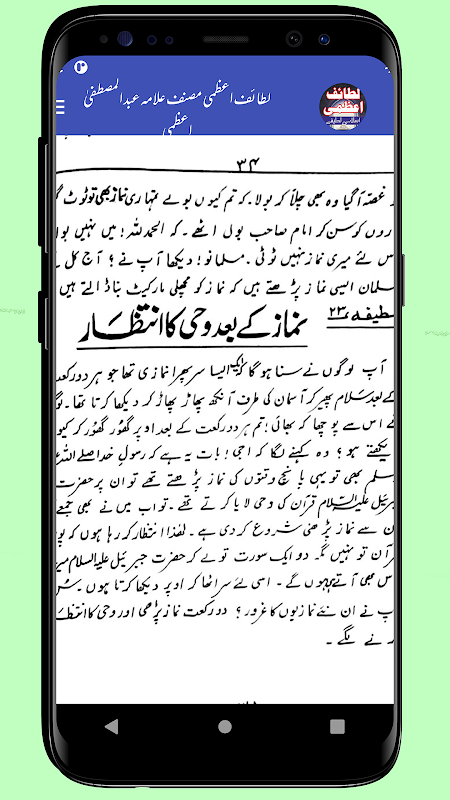 لطائف اعظمی مصنف علامہ عبدالمصطفیٰ
اعظمی
لطائف
اعظمی
۳۴
غصّہ آگیا وہ بھی چلاّ کر بولا۔ کہ تم کیوں بولے تمہاری نماز بھی تو ٹوٹ
روں کو سن کر امام صاحب بول اٹھے۔ کہ الحمدللہ! میں نہیں بولا
س لئے میری نماز نہیں ٹوٹی۔ مسلمانو! دیکھا آپ نے؟ آج کل کے
سلمان ایسی نماز پڑھتے ہیں کہ نماز کو مچھلی مارکیٹ بنا ڈالتے ہیں
طیفہ، ۲۳
نماز کے بعد وحی کا انتظار
آپ لوگوں نے سنا ہوگا کہ ایک ایسا سرپھرا نمازی تھا جو ہر دو رکعت
کے بعد سلام پھیر کر آسمان کی طرف آنکھ پھاڑ پھاڑ کر دیکھا کرتا تھا۔ لوگو
نے اس سے پوچھا کہ بھائی! تم ہر دو رکعت کے بعد اوپر گھُور گھُور کر کیوں
یکھتے ہو؟ وہ کہنے لگا کہ اجی! بات یہ ہے کہ رسول خدا صلے اللہ ع
سلم بھی تو یہی پانچ وقتوں کی نماز پڑھتے تھے تو ان پر حضرت
جبرئیل علیہ السلام قرآن کی وحی لایا کرتے تھے۔ تو اب میں نے بھی جمعے
ن سے نماز پڑھنی شروع کر دی ہے۔ لہٰذا انتظار کر رہا ہوں کہ پو
رآن تو نہیں مگر دو ایک سورت تو لے کر حضرت جبرئیل علیہ السلام میر
س بھی آتے ہی ہوں گے۔ اسی لئے سر اٹھا کر اوپر دیکھا کرتا ہوں۔ سُ
پ نے ان نئے نمازیوں کا غرور؟ دو رکعت نماز پڑھی اور وحی کا انتظا
رنے لگے۔